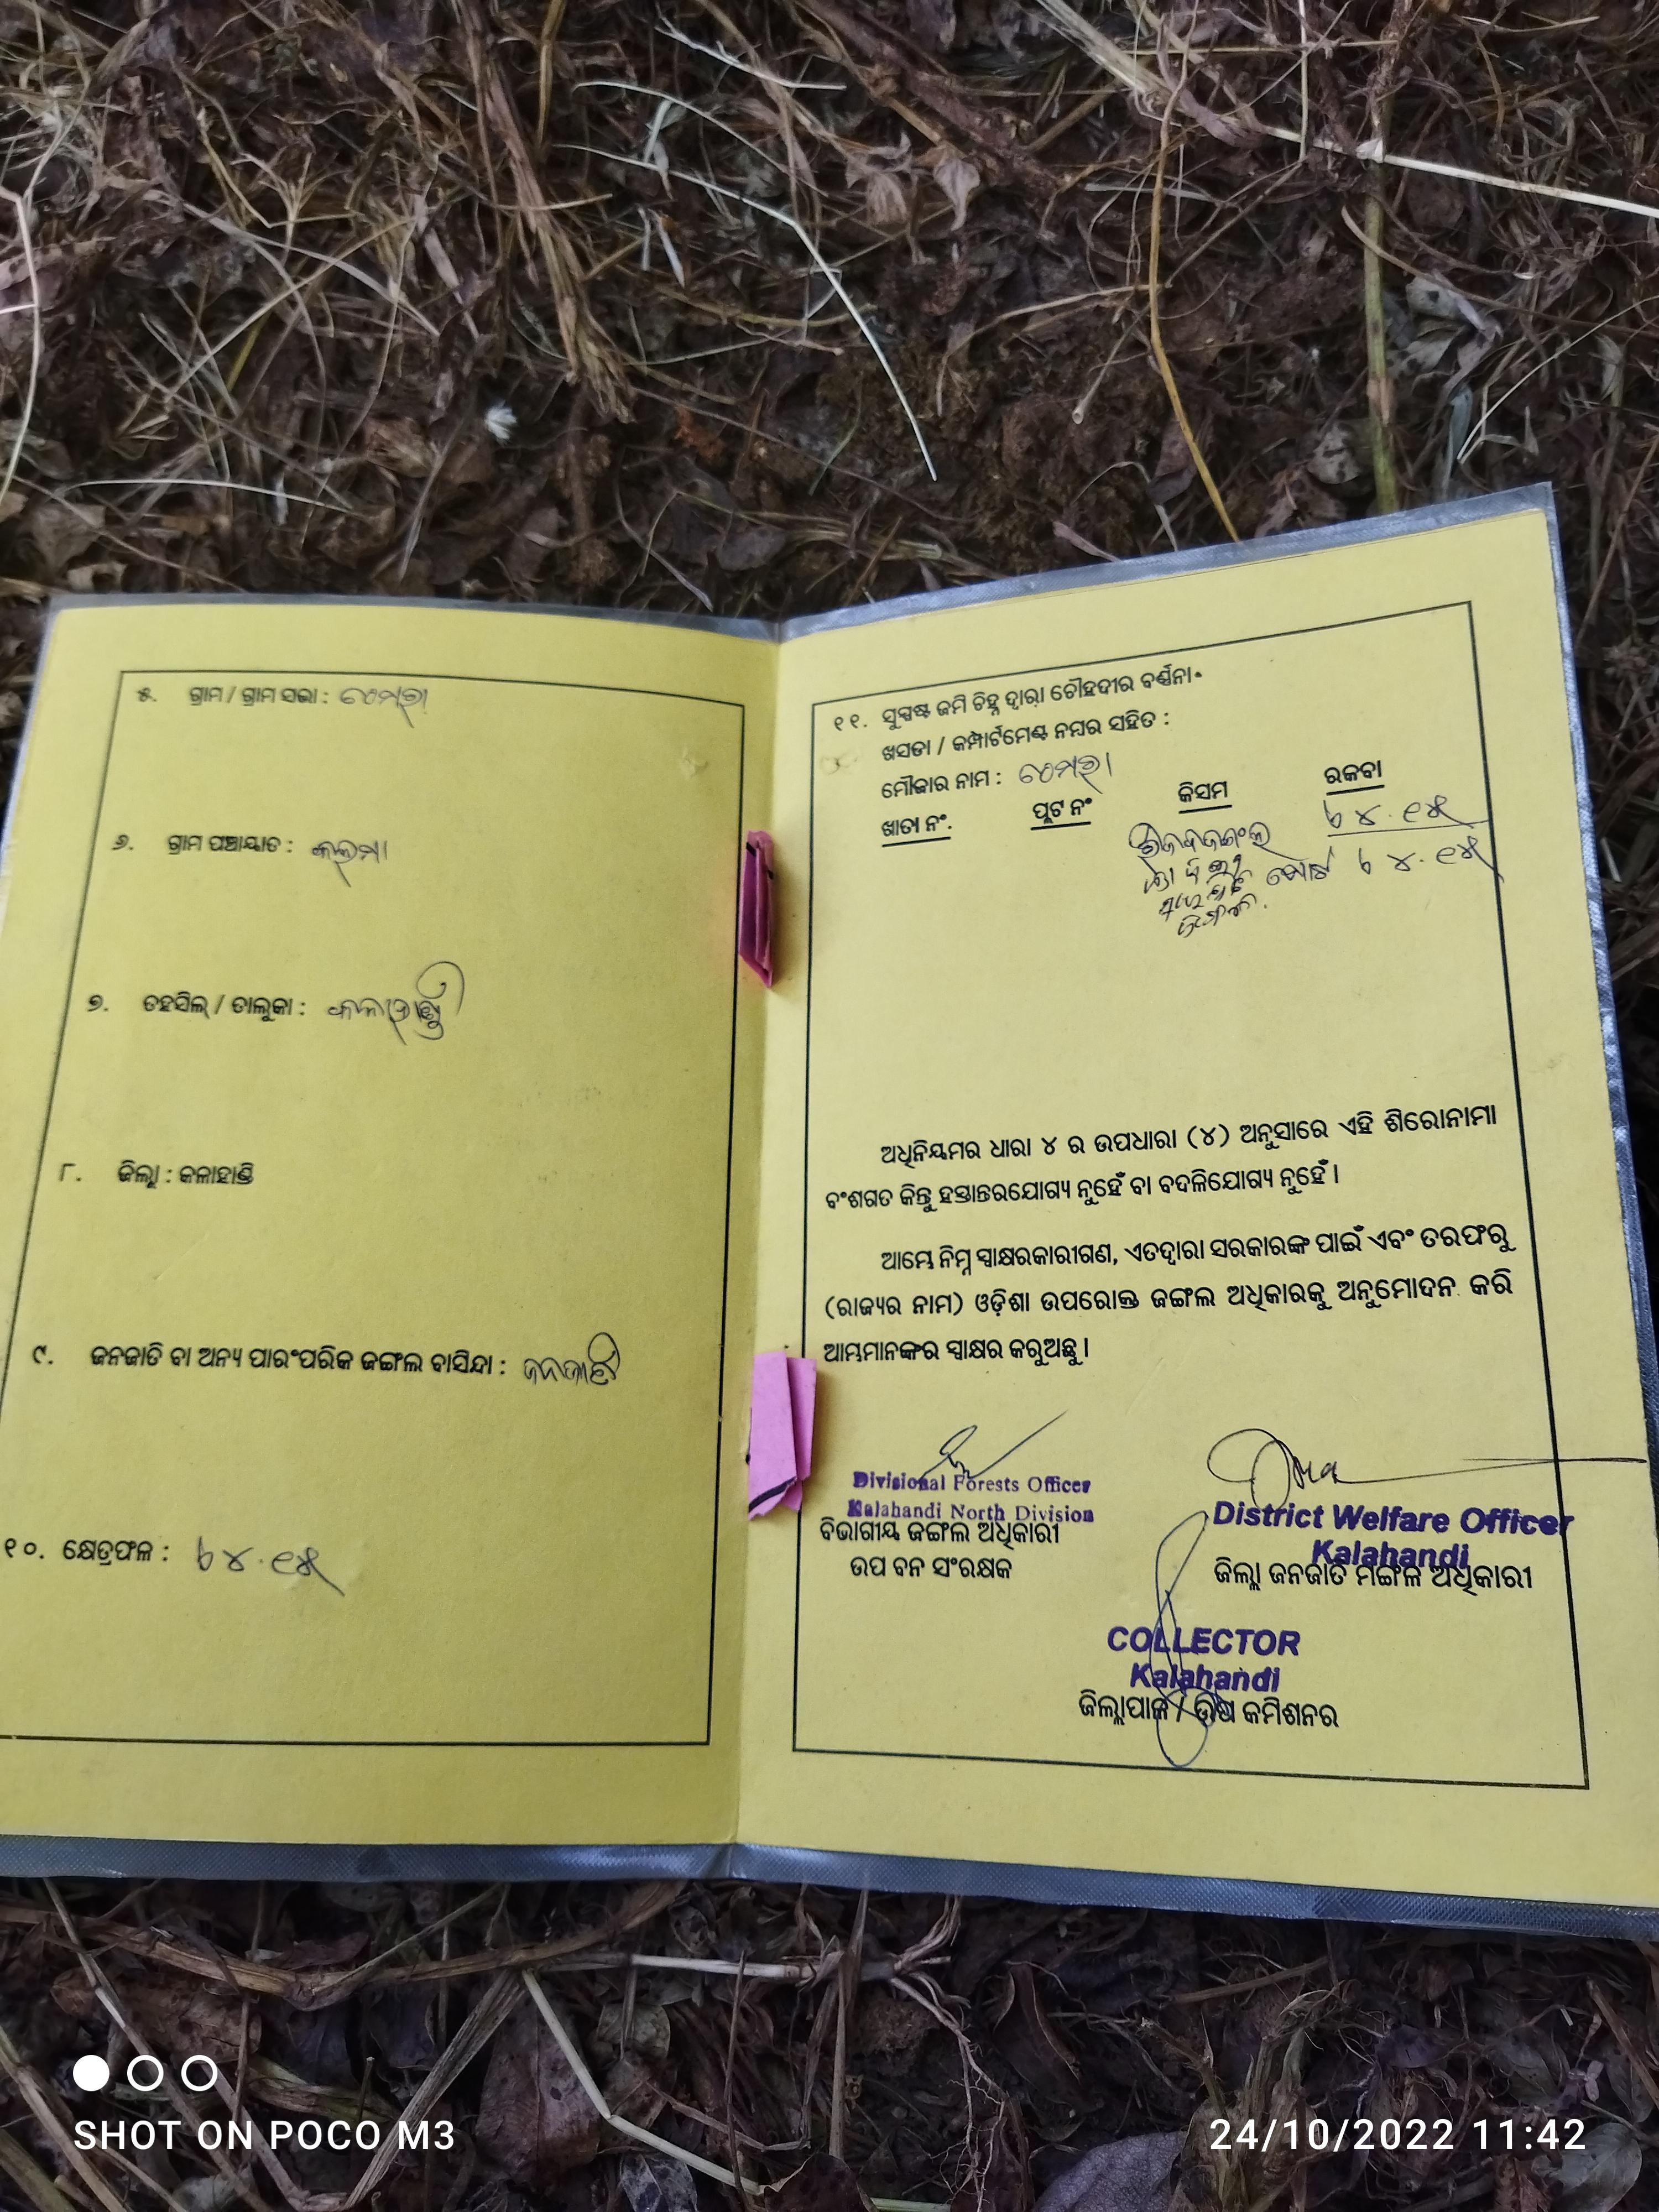 ୫. ଗ୍ରାମ / ଗ୍ରାମ ସଭା : ଟେମ୍ରା
୬. ଗ୍ରାମ ପଞ୍ଚାୟାତ :
୭. ତହସିଲ୍ / ତାଲୁକା :
୮. ଜିଲ୍ଲା : କଳାହାଣ୍ଡି
୯. ଜନଜାତି ବା ଅନ୍ୟ ପାରଂପରିକ ଜଙ୍ଗଲ ବାସିନ୍ଦା : ଜନଜାତି
୧୦. କ୍ଷେତ୍ରଫଳ : ୭୪.୧୫
୧୧. ସୁସ୍ପଷ୍ଟ ଜମି ଚିହ୍ନ ଦ୍ୱାରା ଚୌହଦୀର ବର୍ଣ୍ଣନା
ଖସଡା / କମ୍ପାର୍ଟମେଣ୍ଟ ନମ୍ବର ସହିତ :
ମୌଜାର ନାମ : ଟେମ୍ରା
ଖାତା ନଂ. ପ୍ଲଟ ନଂ କିସମ ରକବା
୭୪.୧୫
ମୋଟ ୭୪.୧୫
ଅଧିନିୟମର ଧାରା ୪ ର ଉପଧାରା (୪) ଅନୁସାରେ ଏହି ଶିରୋନାମା
ବଂଶଗତ କିନ୍ତୁ ହସ୍ତାନ୍ତରଯୋଗ୍ୟ ନୁହେଁ ବା ବଦଳିଯୋଗ୍ୟ ନୁହେଁ ।
ଆମ୍ଭେ ନିମ୍ନ ସ୍ୱାକ୍ଷରକାରୀଗଣ, ଏତଦ୍ୱାରା ସରକାରଙ୍କ ପାଇଁ ଏବଂ ତରଫରୁ
(ରାଜ୍ୟର ନାମ) ଓଡ଼ିଶା ଉପରୋକ୍ତ ଜଙ୍ଗଲ ଅଧିକାରକୁ ଅନୁମୋଦନ କରି
ଆମ୍ଭମାନଙ୍କର ସ୍ୱାକ୍ଷର କରୁଅଛୁ ।
Divisional Forests Officer
Kalahandi North Division
ବିଭାଗୀୟ ଜଙ୍ଗଲ ଅଧିକାରୀ
ଉପ ବନ ସଂରକ୍ଷକ
District Welfare Officer
Kalahandi
ଜିଲ୍ଲା ଜନଜାତି ମଙ୍ଗଳ ଅଧିକାରୀ
COLLECTOR
Kalahandi
ଜିଲ୍ଲାପାଳ / ଉପ କମିଶନର
SHOT ON POCO M3
24/10/2022 11:42